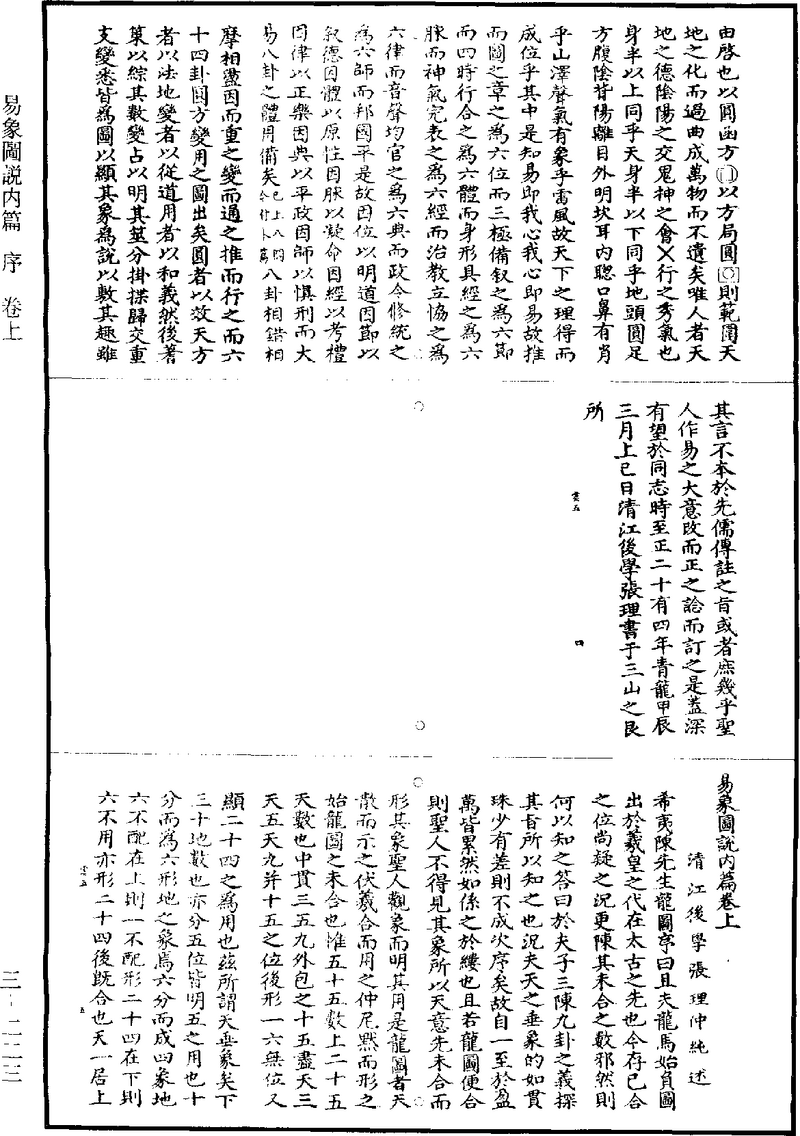 易象圖説内篇 序 卷上
由啓也以圓函方以方局圓則範圍天
地之化而過曲成萬物而不遺矣唯人者天
地之德陰陽之交鬼神之會㐅行之秀氣也
身半以上同乎天身半以下同乎地頭圓足
方腹陰背陽離目外明坎耳内聰口鼻有肖
乎山澤聲氣有象乎雷風故天下之理得而
成位乎其中是知易即我心我心即易故推
而圖之章之爲六位而三極備叙之爲六節
而四時行合之爲六體而身形具經之爲六
脉而神氣完表之爲六經而治教立協之爲
六律而音聲均官之爲六典而政令修統之
爲六師而邦國平是故因位以明道因節以
叙德因體以原性因脉以凝命因經以考禮
因律以正樂因典以平政因師以慎刑而大
易八卦之體用備矣 八卦相錯相
摩相盪因而重之變而通之推而行之而六
十四卦圓方變用之圖出矣圓者以效天方
者以法地變者以從道用者以和義然後蓍
策以綜其數變占以明其筮分掛揲歸交重
支變悉皆爲圖以顯其象爲説以敷其趣雖
其言不本於先儒傳註之旨或者庶幾乎聖
人作易之大意改而正之諗而訂之是蓋深
有望於同志時至正二十有四年青龍甲辰
三月上巳日清江後學張理書于三山之艮
所
雲五
四
易象圖説内篇卷上
清江後學張理仲純述
希夷陳先生龍圖序曰且夫龍馬始負圖
出於羲皇之代在太古之先也今存已合
之位尚疑之況更陳其未合之數邪然則
何以知之答曰於夫子三陳九卦之義探
其旨所以知之也況夫天之垂象的如貫
珠少有差則不成次序矣故自一至於盈
萬皆累然如係之於縷也且若龍圖便合
則聖人不得見其象所以天意先未合而
形其象聖人觀象而明其用是龍圖者天
散而示之伏羲合而用之仲尼默而形之
始龍圖之未合也惟五十五數上二十五
天數也中貫三五九外包之十五盡天三
天五天九并十五之位後形一六無位又
顯二十四之爲用也兹所謂天垂象矣下
三十地數也亦分五位皆明五之用也十
分而爲六形地之象焉六分而成四象地
六不配在上則一不配形二十四在下則
六不用亦形二十四後既合也天一居上
雲五
五
三－二二三